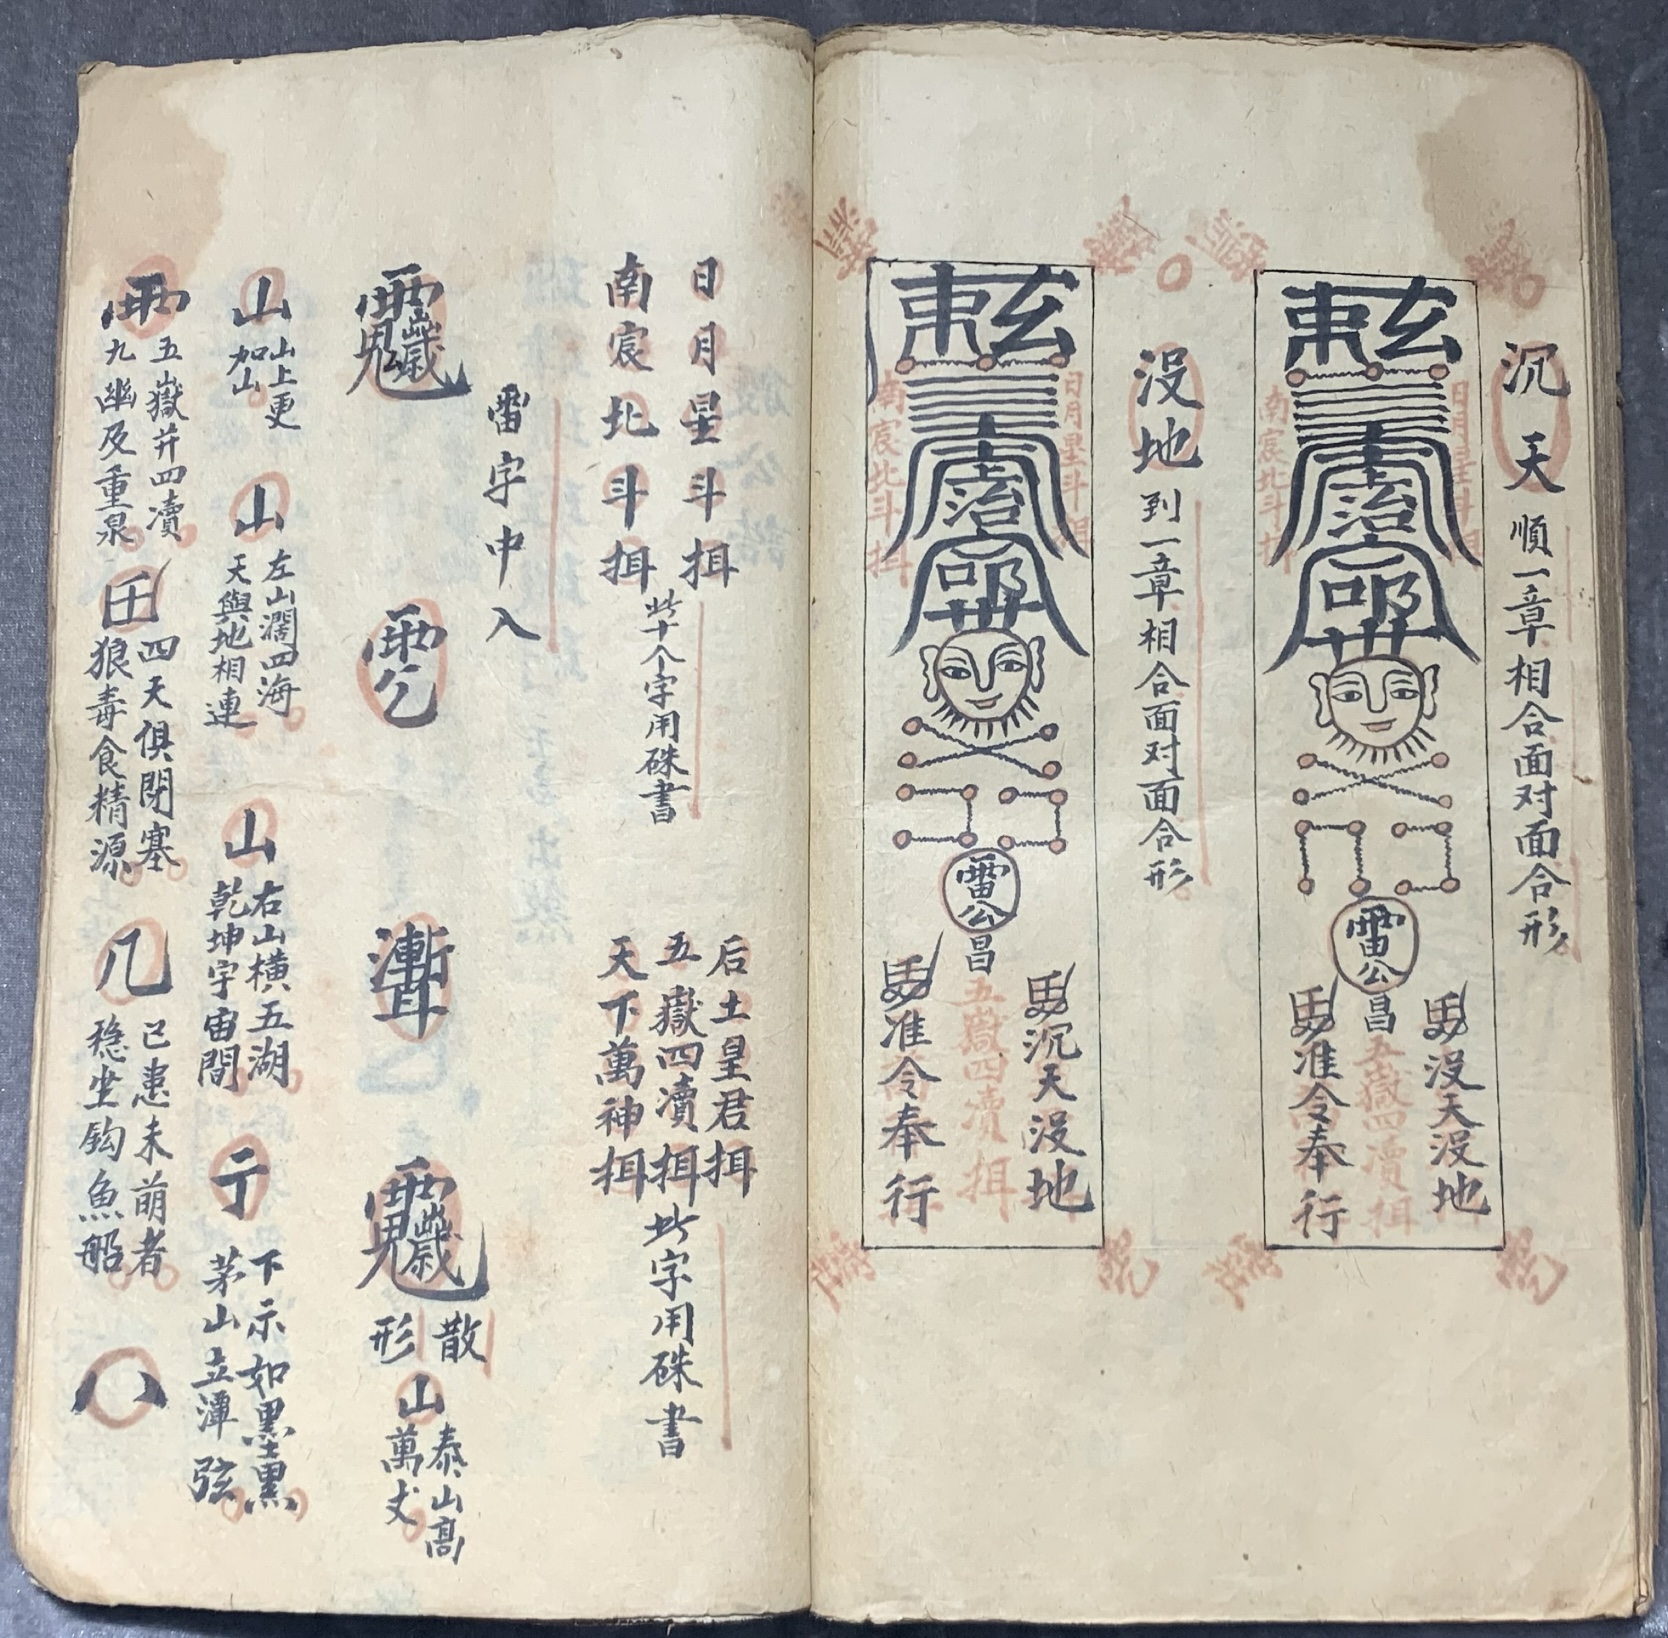 沉天順一章相合面对面合形
治
雷公
昌
五嶽四瀆揖
没天没地
准令奉行
没地到一章相合面对面合形
日月星斗揖
南宸北斗揖
治
雷公
昌
五嶽四瀆揖
沉天没地
准令奉行
日月星斗揖
南宸北斗揖
此十个字用硃書
后土皇君揖
五嶽四瀆揖
天下萬神揖
此字用硃書
雷字中入
散形
山
泰山高萬丈
山
山上更加山
山
左山濶四海
天與地相連
山
右山橫五湖
乾坤宇宙間
下示如墨黑
茅山立潭弦
五嶽并四瀆
九幽及重泉
四天俱閉塞
狼毒食精源
几
已患未萌者
穏坐鈎魚船